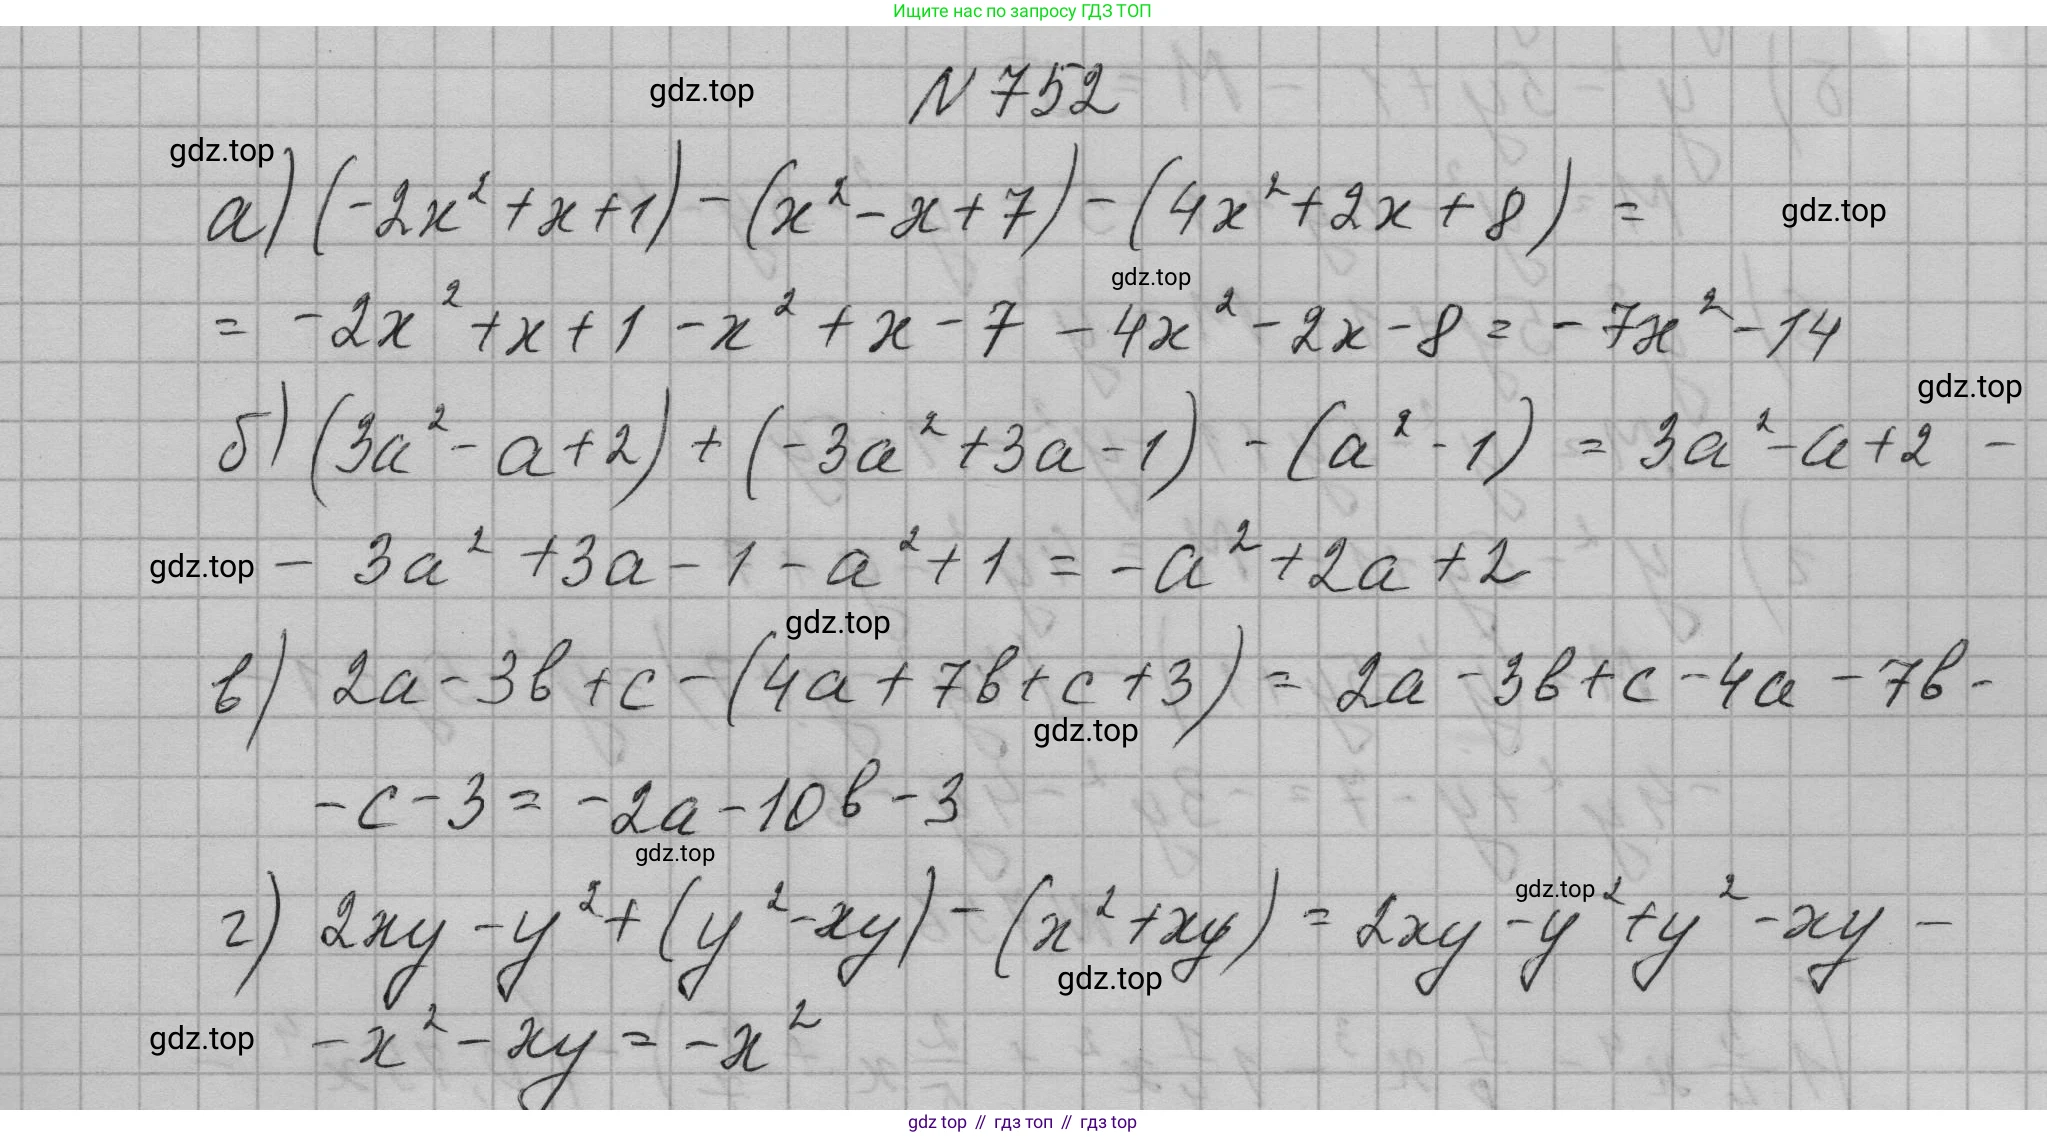 Ищите нас по запросу ГДЗ ТОП
gdz.top
N 752
gdz.top
а) (-2x² + x + 1) - (x² - x + 7) - (4x² + 2x + 8) =
gdz.top
gdz.top
= -2x² + x + 1 - x² + x - 7 - 4x² - 2x - 8 = -7x² - 14
gdz.top
б) (3a² - a + 2) + (-3a² + 3a - 1) - (a² - 1) = 3a² - a + 2 -
gdz.top
- 3a² + 3a - 1 - a² + 1 = -a² + 2a + 2
gdz.top
в) 2a - 3b + c - (4a + 7b + c + 3) = 2a - 3b + c - 4a - 7b -
gdz.top
- c - 3 = -2a - 10b - 3
gdz.top
gdz.top
г) 2xy - y² + (y² - xy) - (x² + xy) = 2xy - y² + y² - xy -
gdz.top
gdz.top
- x² - xy = -x²
gdz top // гдз топ // gdz top